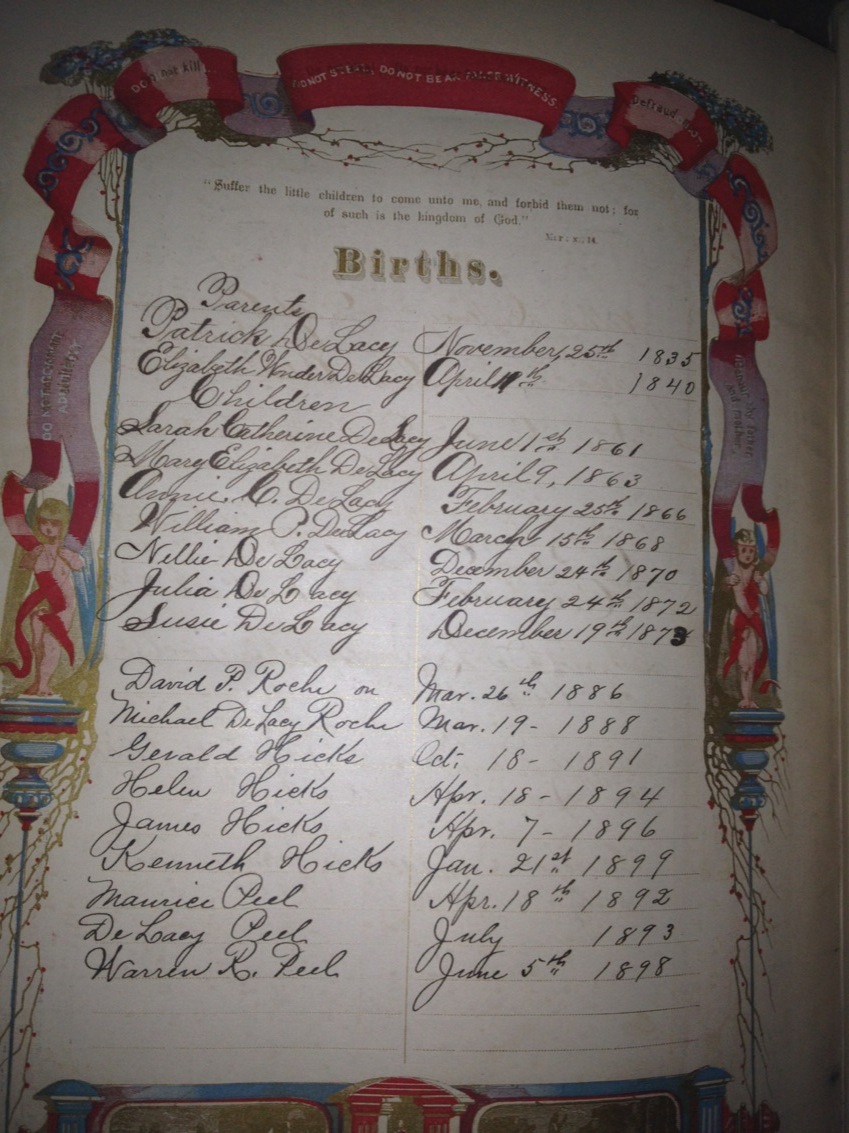 Do not kill.
DO NOT STEAL, DO NOT BEAR FALSE WITNESS
Defraud not
"Suffer the little children to come unto me, and forbid them not; for
of such is the kingdom of God."
Mar: x., 14.
Births.
Parents
Patrick DeLacy November, 25th 1835
Elizabeth Wonder DeLacy April th 1840
Children
Sarah Catherine DeLacy June 1st 1861
Mary Elizabeth DeLacy April 9, 1863
Annie. DeLacy February 25th 1866
William P. DeLacy March 15th 1868
Nellie DeLacy December 24th 1870
Julia DeLacy February 24th 1872
Susie DeLacy December 19th 1873
David P. Roche on Mar. 26th 1886
Michael DeLacy Roche Mar. 19 - 1888
Gerald Hicks Oct: 18 - 1891
Helen Hicks Apr. 18 - 1894
James Hicks Apr. 7 - 1896
Kenneth Hicks Jan. 21st 1899
Maurice Peel Apr. 18th 1892
DeLacy Peel July 1893
Warren R. Peel June 5th 1898
DO NOT COMMIT
ADULTERY
Honour thy father
and mother.